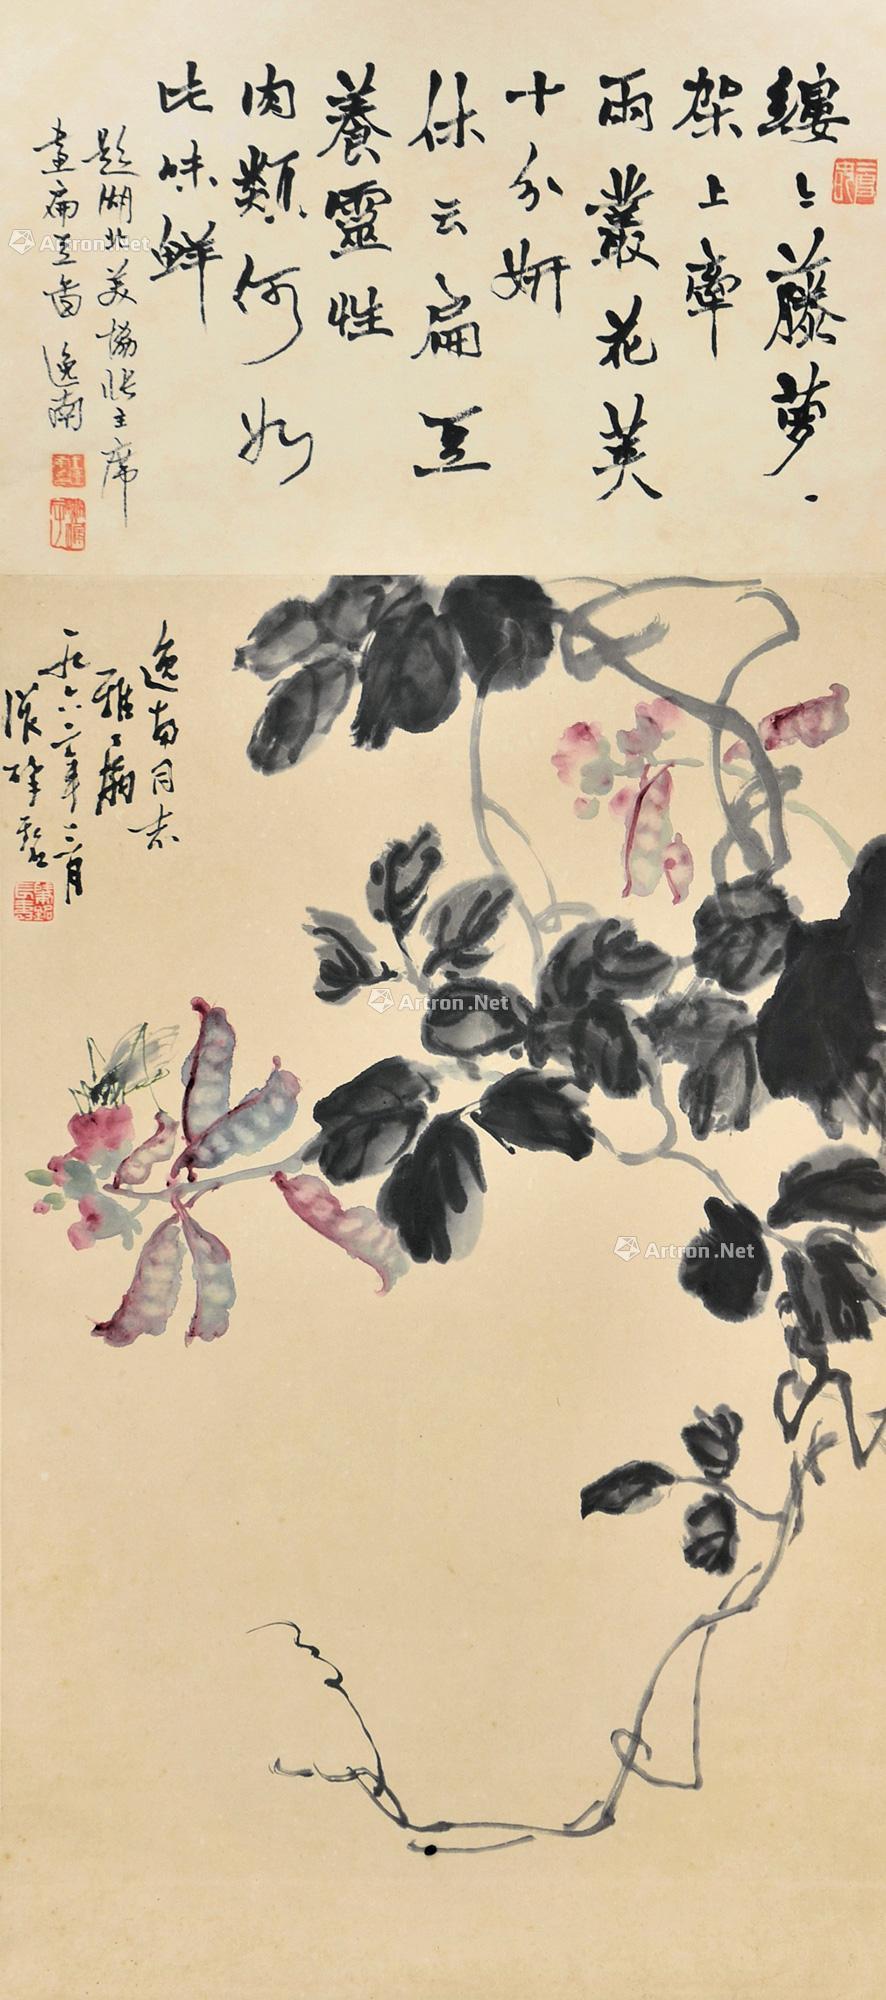 縷〻藤萝
架上牽
雨叢花荚
十分妍
休云扁豆
養靈性
肉類何如
此味鮮
題湖北美協張主席
畫扁豆圖 逸南
逸南同志
雅屬
一九六二年三月
張肇銘
Artron.Net
Artron.Net
Artron.Net